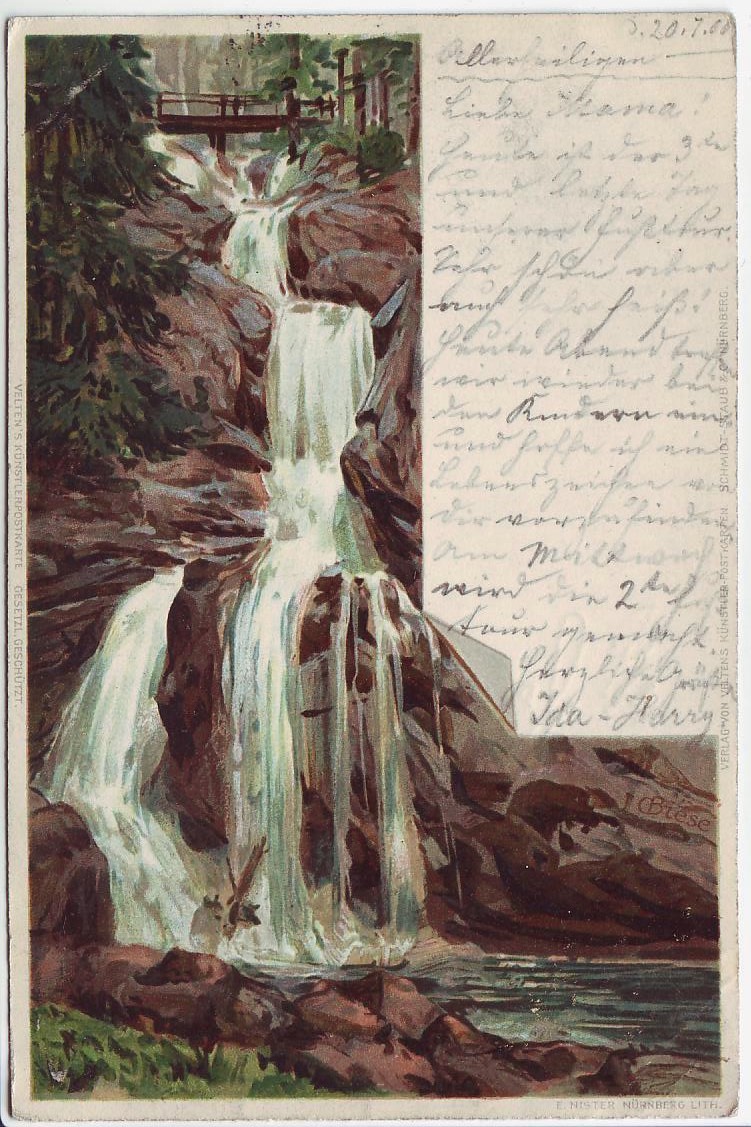 d. 20.7.00
Allerheiligen
Liebe Mama!
Heute ist der 3te
und letzte Tag
unserer Fußtour.
Sehr schön aber
auch sehr heiß!
Heute Abend
wir wieder bei
den Kindern
und hoffe ich ein
Lebenszeichen von
Dir vorzufinden
Am Mittwoch
wird die 2te
tour gemacht
Herzlichst
Ida-Harry
CBiese
VELTEN'S KÜNSTLERPOSTKARTE GESETZL. GESCHÜTZT.
VERLAG VON VELTENS KÜNSTLER-POSTKARTEN SCHMIDT-STAUB & Co NÜRNBERG.
E. NISTER NÜRNBERG LITH.